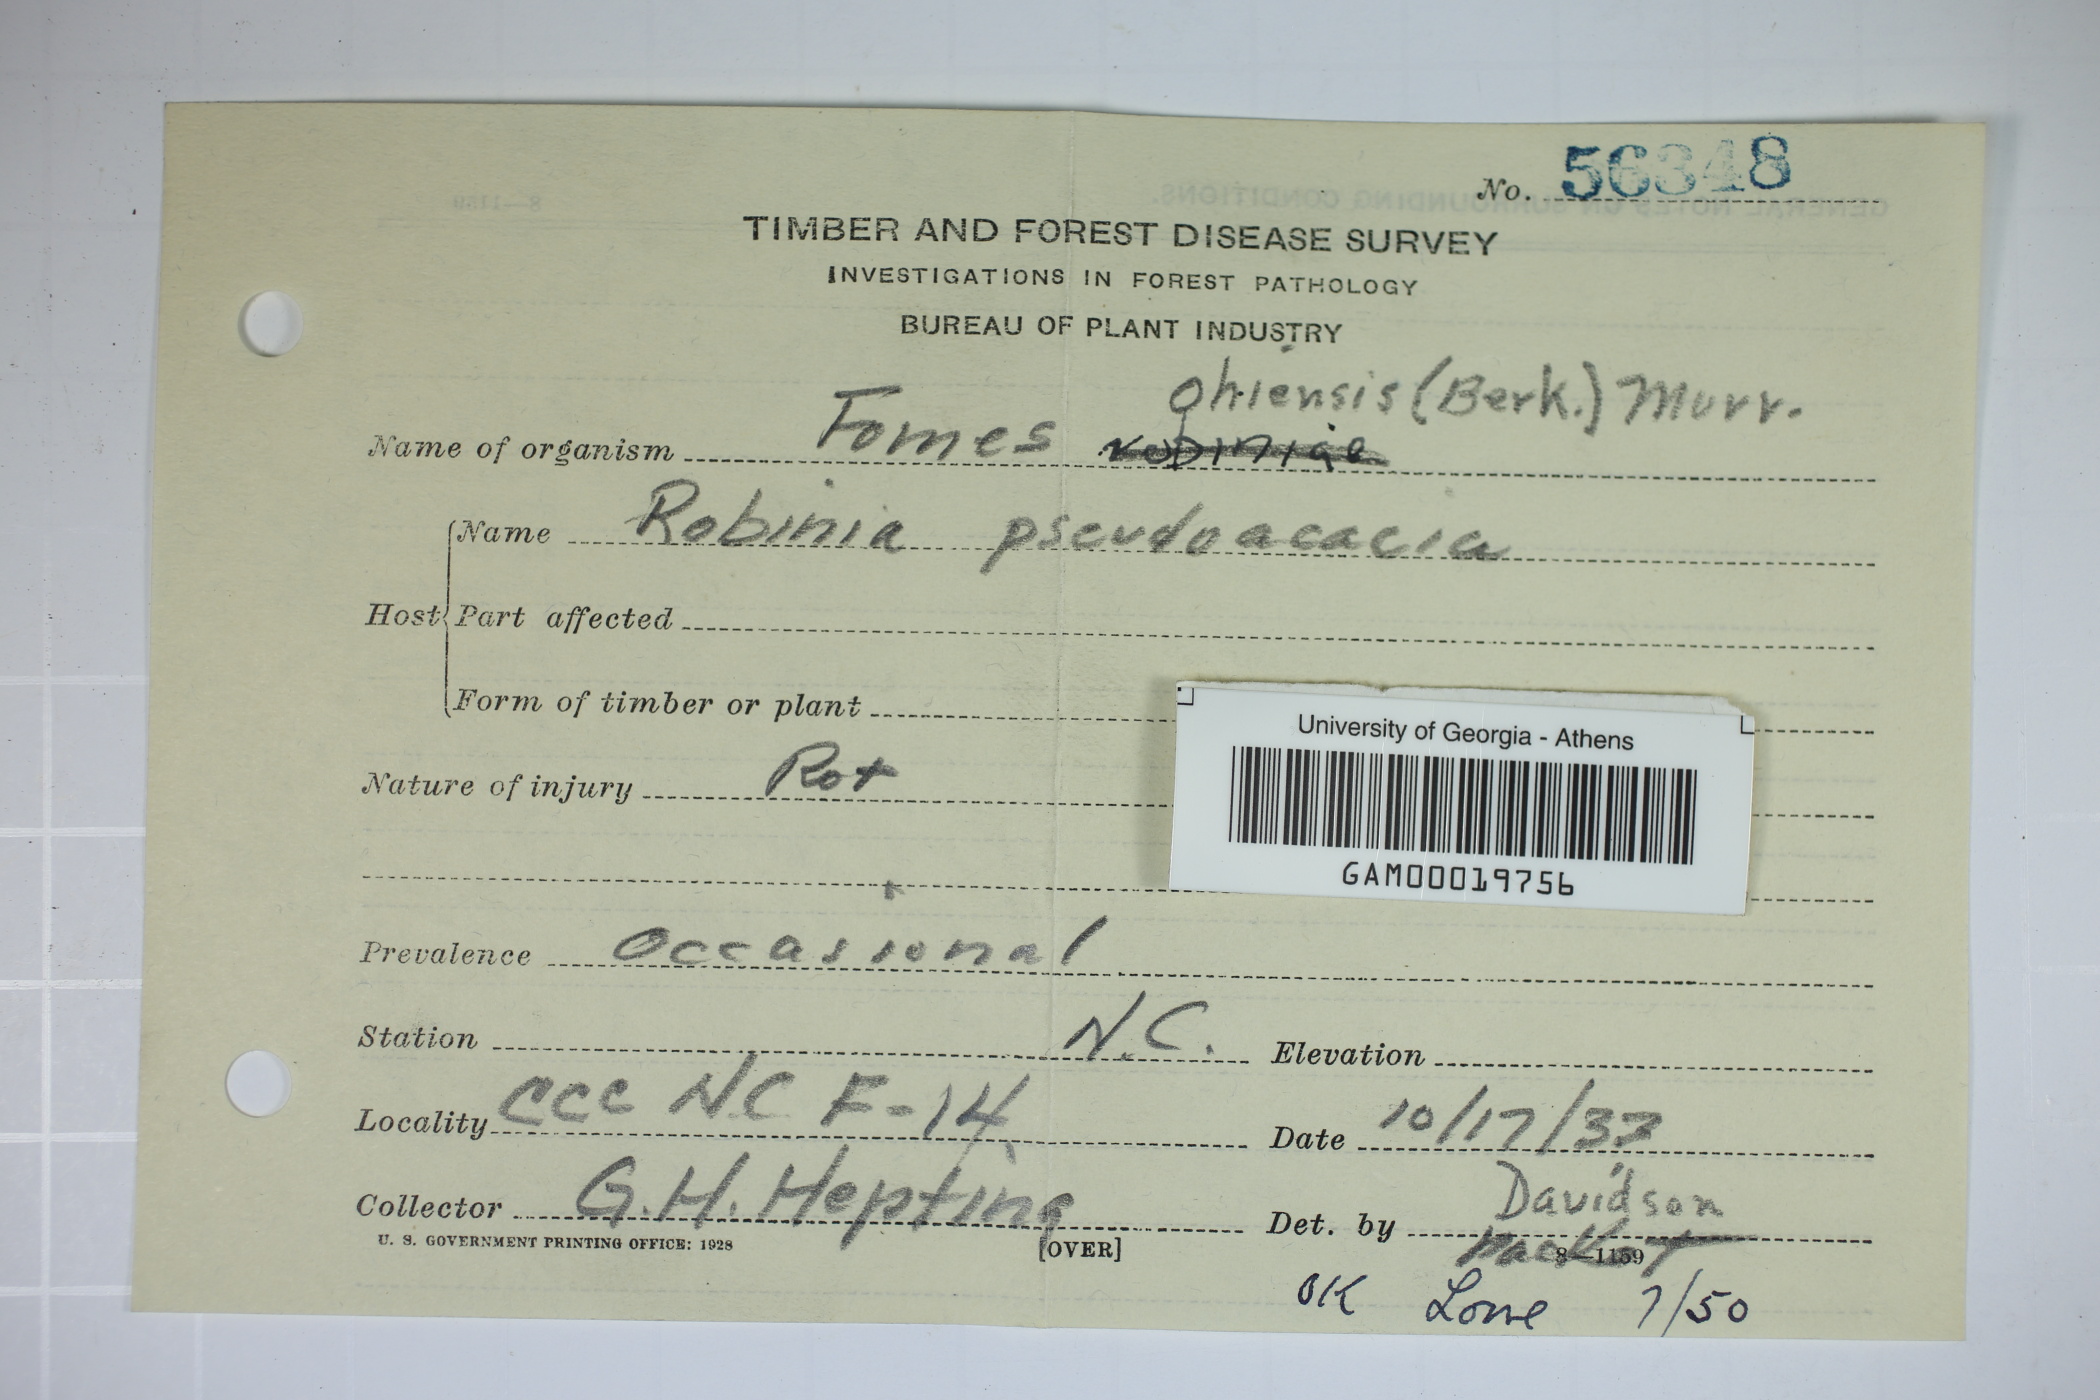 No. 56348
TIMBER AND FOREST DISEASE SURVEY
INVESTIGATIONS IN FOREST PATHOLOGY
BUREAU OF PLANT INDUSTRY
ohiensis (Berk.) Murr.
Name of organism Fomes robiniae
Host
Name Robinia pseudoacacia
Part affected
Form of timber or plant
University of Georgia - Athens
GAM00019756
Nature of injury Rot
Prevalence Occasional
Station N.C. Elevation
Locality CCC NC F-14 Date 10/17/33
Davidson
Collector G.H. Hepting Det. by
U. S. GOVERNMENT PRINTING OFFICE: 1928 [OVER] 8—1159
OK Lowe 7/50